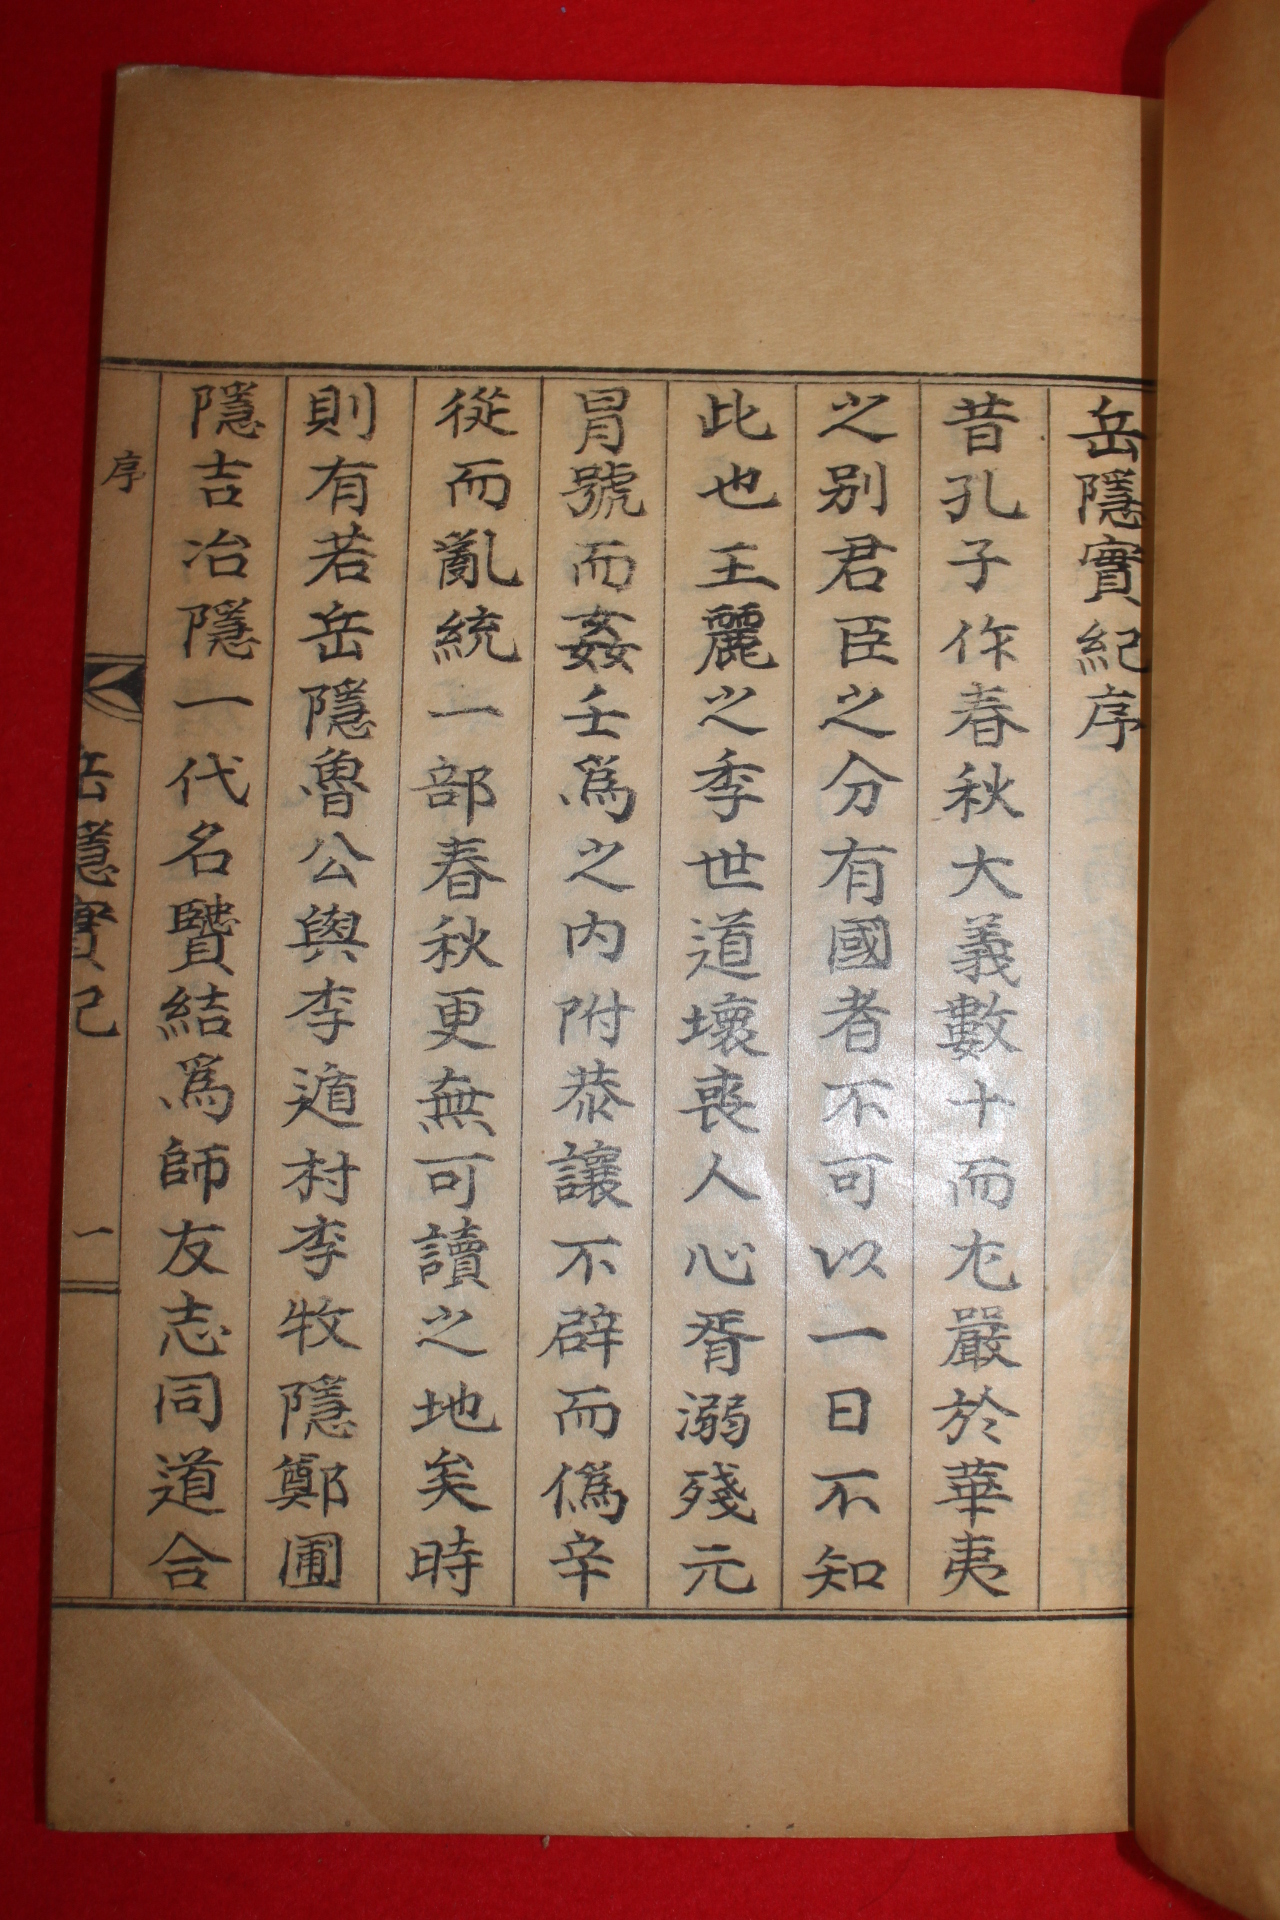 岳隱實紀序
昔孔子作春秋大義數十而尤嚴於華夷
之別君臣之分有國者不可以一日不知
此也王麗之季世道壞喪人心胥溺殘元
冒號而姦壬爲之內附恭讓不辟而僞辛
從而亂統一部春秋更無可讀之地矣時
則有若岳隱魯公與李遁村李牧隱鄭圃
隱吉冶隱一代名賢結爲師友志同道合
序
岳隱實紀
一